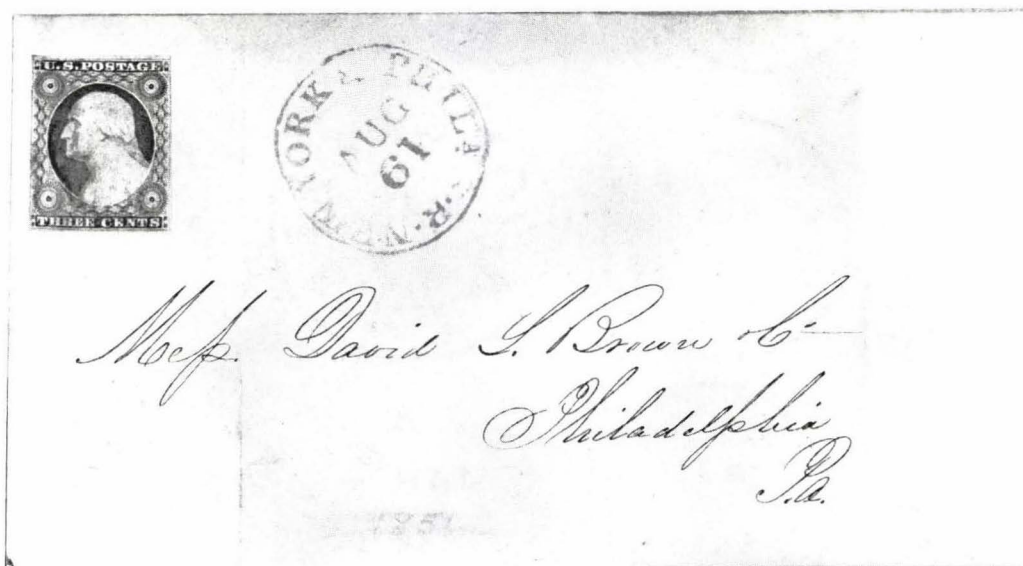 U.S. POSTAGE
THREE CENTS
NEW YORK & PHILA R.R.
AUG
19
Mess. David S. Brown & Co
Philadelphia
Pa.
1851